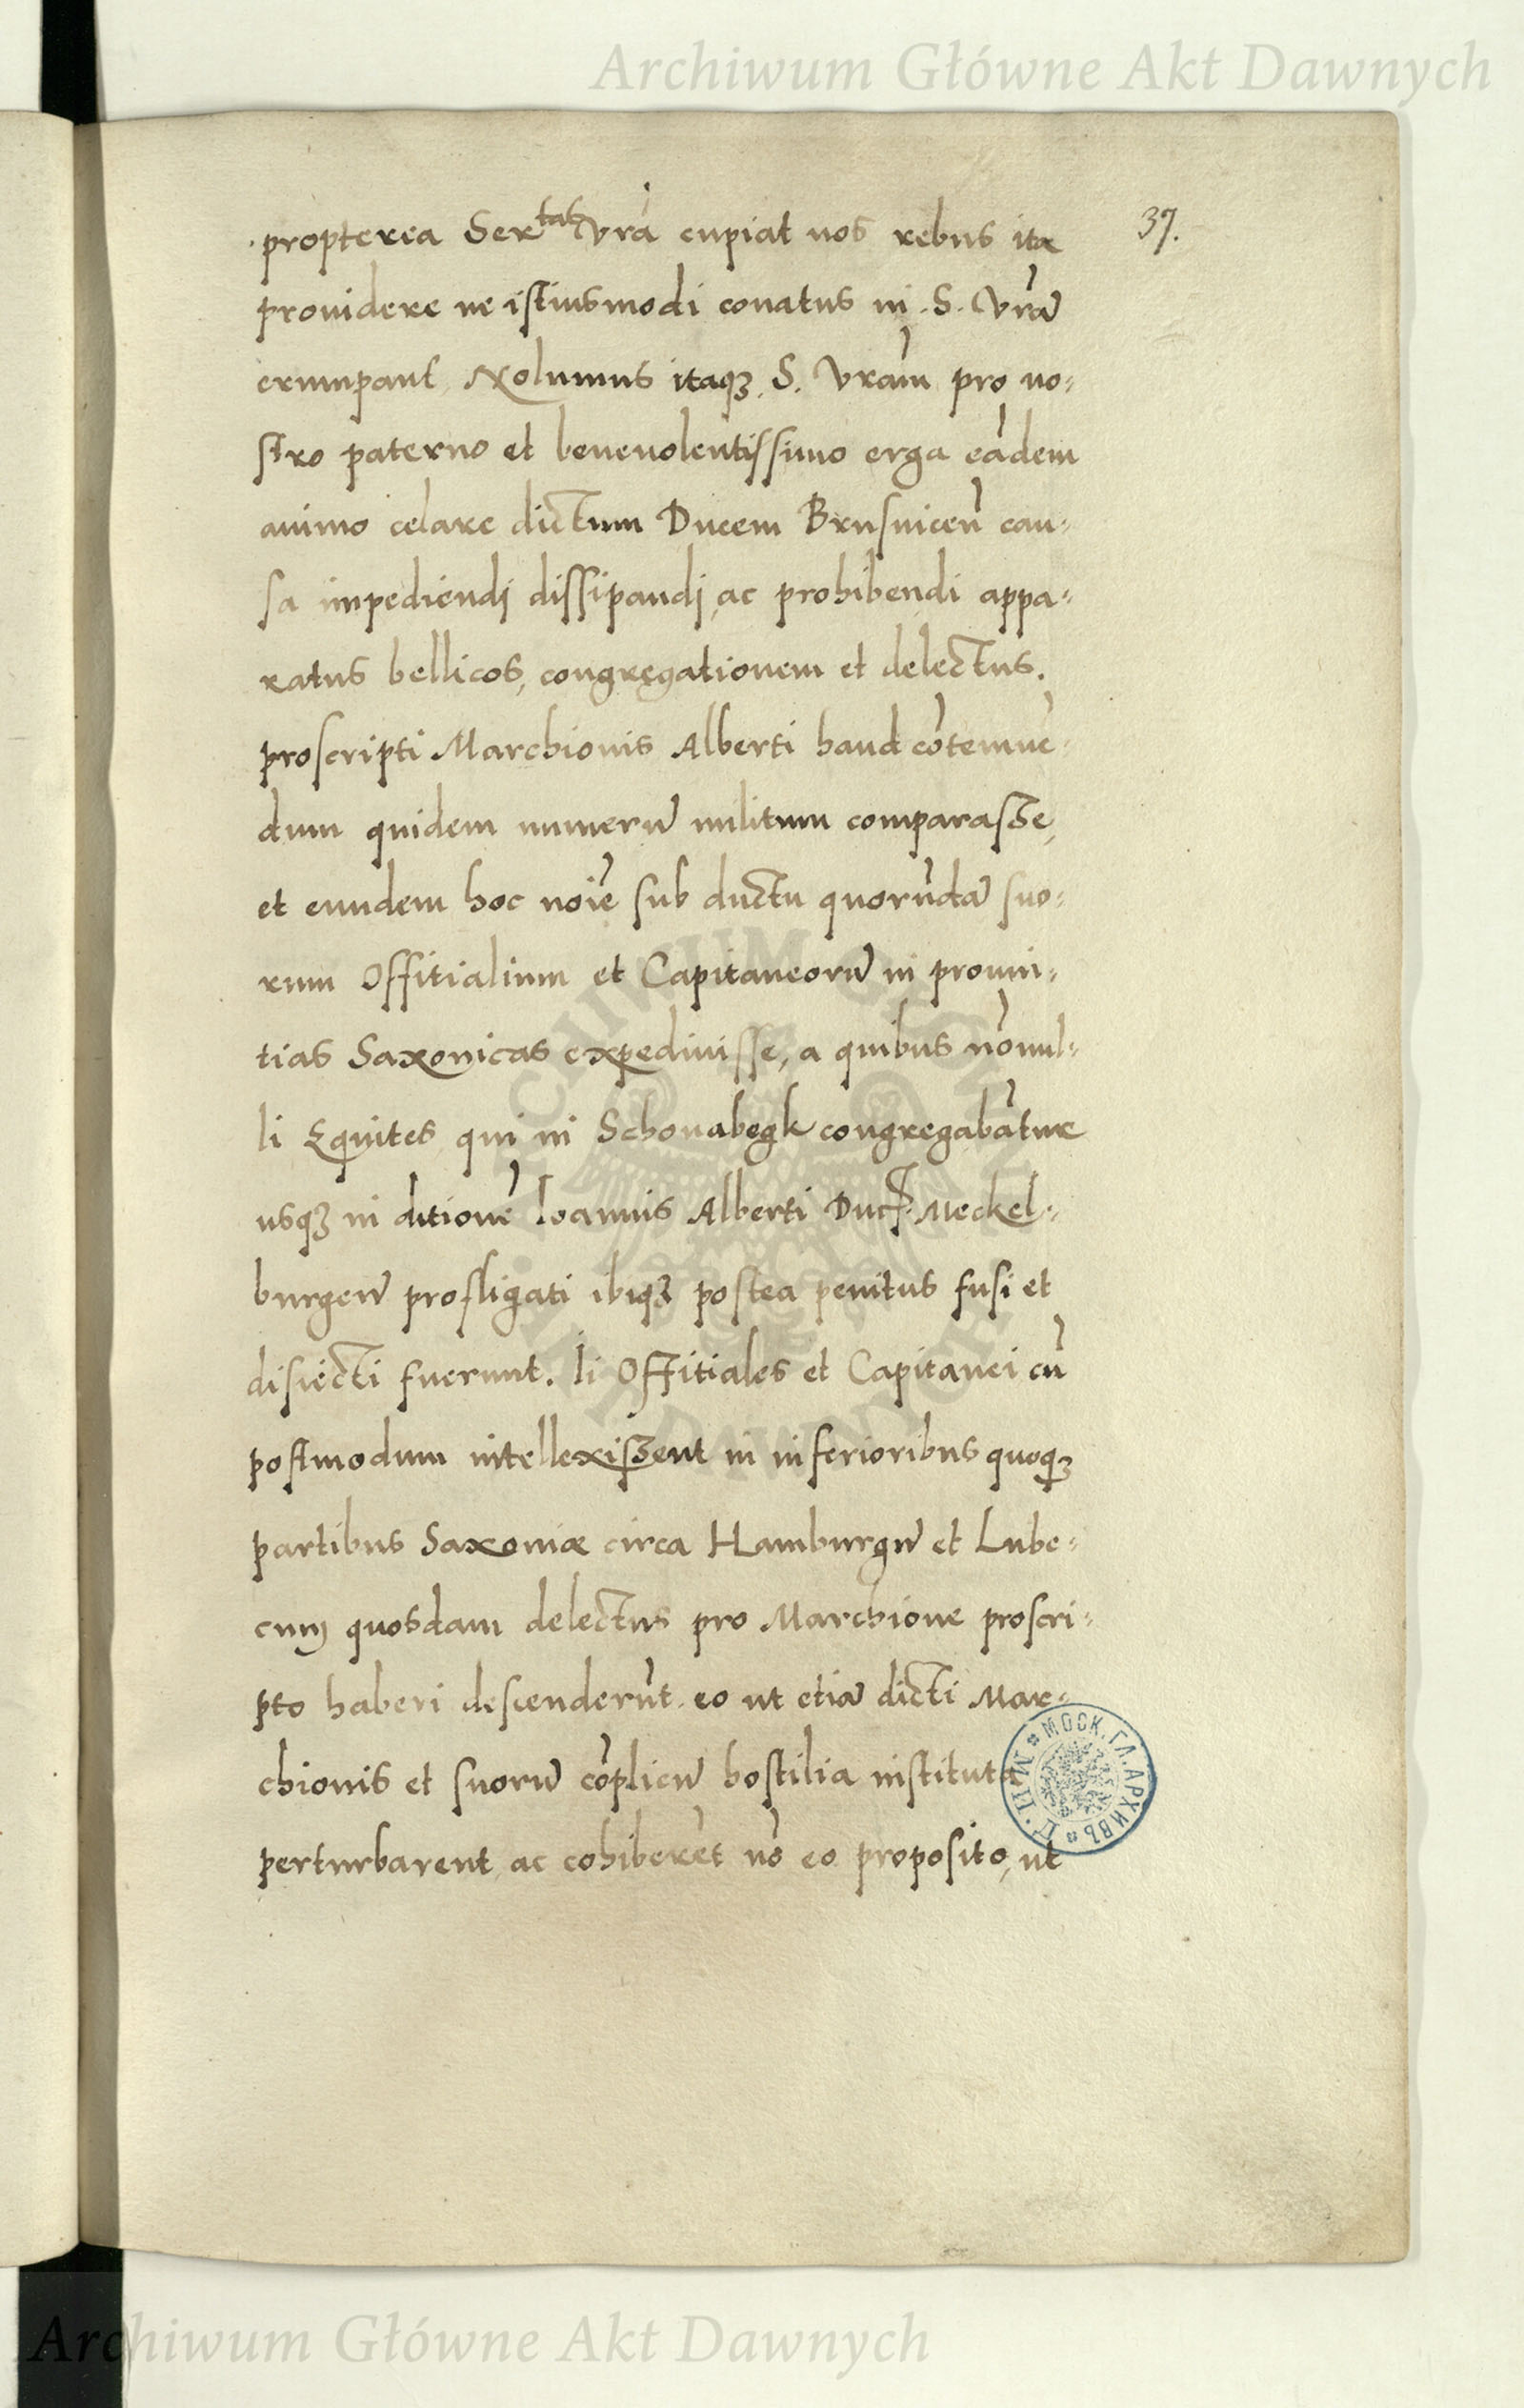 Archiwum Główne Akt Dawnych
37.
propterea Ser^tas Vra cupiat nos rebus ita
prouidere ne istiusmodi conatus in .S. Vra͂
erumpant, Nolumus itaq₃ .S. Vram̃ pro no-
stro paterno et beneuolentissimo erga eãdem
animo celare dictum Ducem Brusuiceñ cau-
sa impediendi dissipandi, ac prohibendi appa-
ratus bellicos, congregationem et delectus.
proscripti Marchionis Alberti haud cõtemnẽ-
dum quidem numerũ militum comparasse,
et eundem hoc noĩe sub ductu quorũdã suo-
rum Offitialium et Capitaneorũ in prouin-
tias Saxonicas expediuisse, a quibus nõnul-
li Equites qui in Schonabegk congregabãtur
usq₃ in ditionẽ Ioannis Alberti Duc̃ Meckel-
burgeñ profligati ibiq₃ postea penitus fusi et
disiecti fuerunt. Ii Offitiales et Capitanei cũ
postmodum intellexissent in inferioribus quoq₃
partibus Saxoniæ circa Hamburgũ et Lube-
cum quosdam delectus pro Marchione proscri-
pto haberi descenderũt eo ut etiã dicti Mar-
chionis et suorũ cõplicũ hostilia instituta
perturbarent, ac cohiberẽt nõ eo proposito, ut
МОСК. ГЛ. АРХИВЪ
М. И. Д.
Archiwum Główne Akt Dawnych